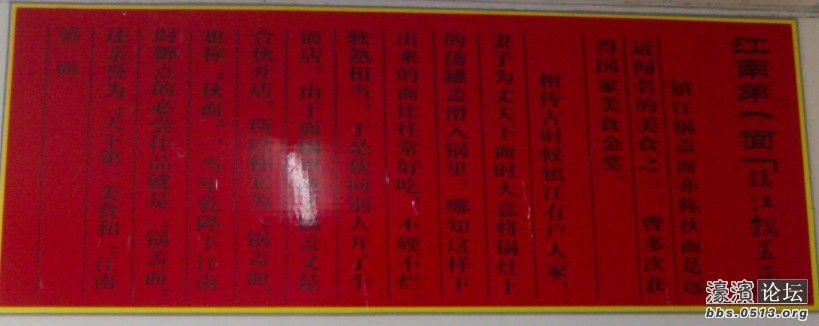 江南第一面「镇江锅盖面
镇江锅盖面亦称伙面是远
近闻名的美食之一，曾多次获
得国家美食金奖。
相传古时候镇江有户人家，
妻子为丈夫下面时大意将锅灶上
的汤罐盖滑入锅里，哪知这样下
出来的面比往常好吃，不硬不烂、
软熟相当。于是伙同别人开了个
面店，由于面锅 盖又是
合伙开店，所以称它为“锅盖面，
也称“伙面”。当年乾隆下江南
时御点的必尝佳品就是“锅盖面，
还亲誉为“天下第一美食和“江南
第一面”
濠滨论坛
bbs.0513.org